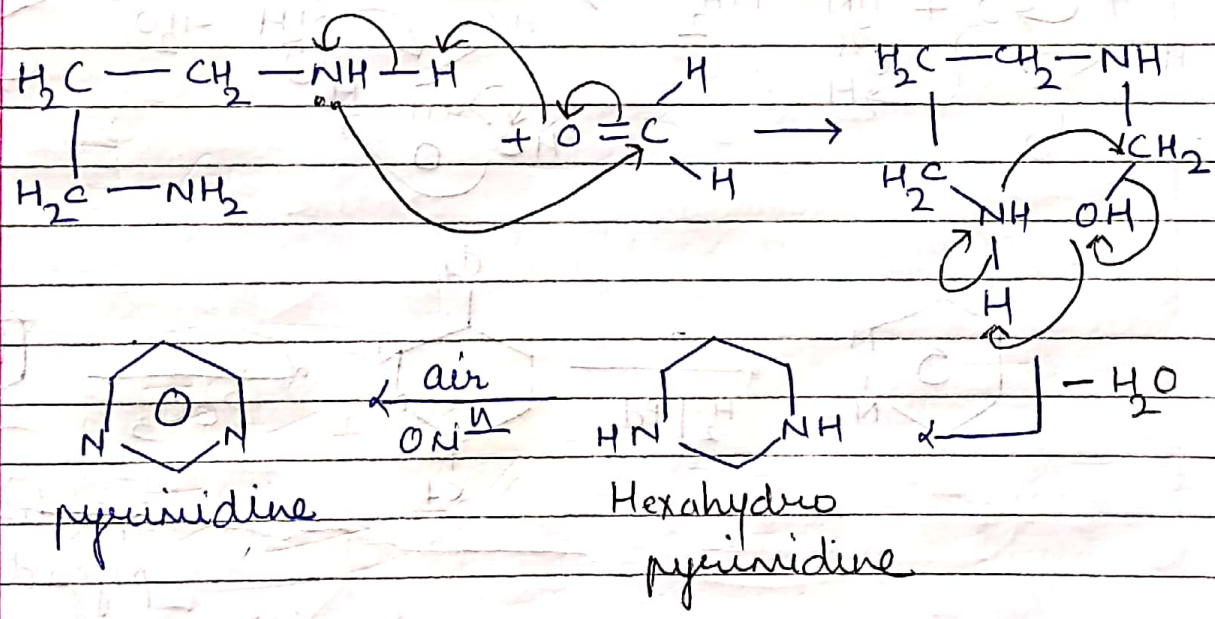 H₂C — CH₂ — NH — H
H
+ O = C
H
H₂C — NH₂
H₂C — CH₂ — NH
CH₂
H₂C
NH OH
H
- H₂O
HN NH
Hexahydro
pyrimidine
air
OXiⁿ
N N
pyrimidine